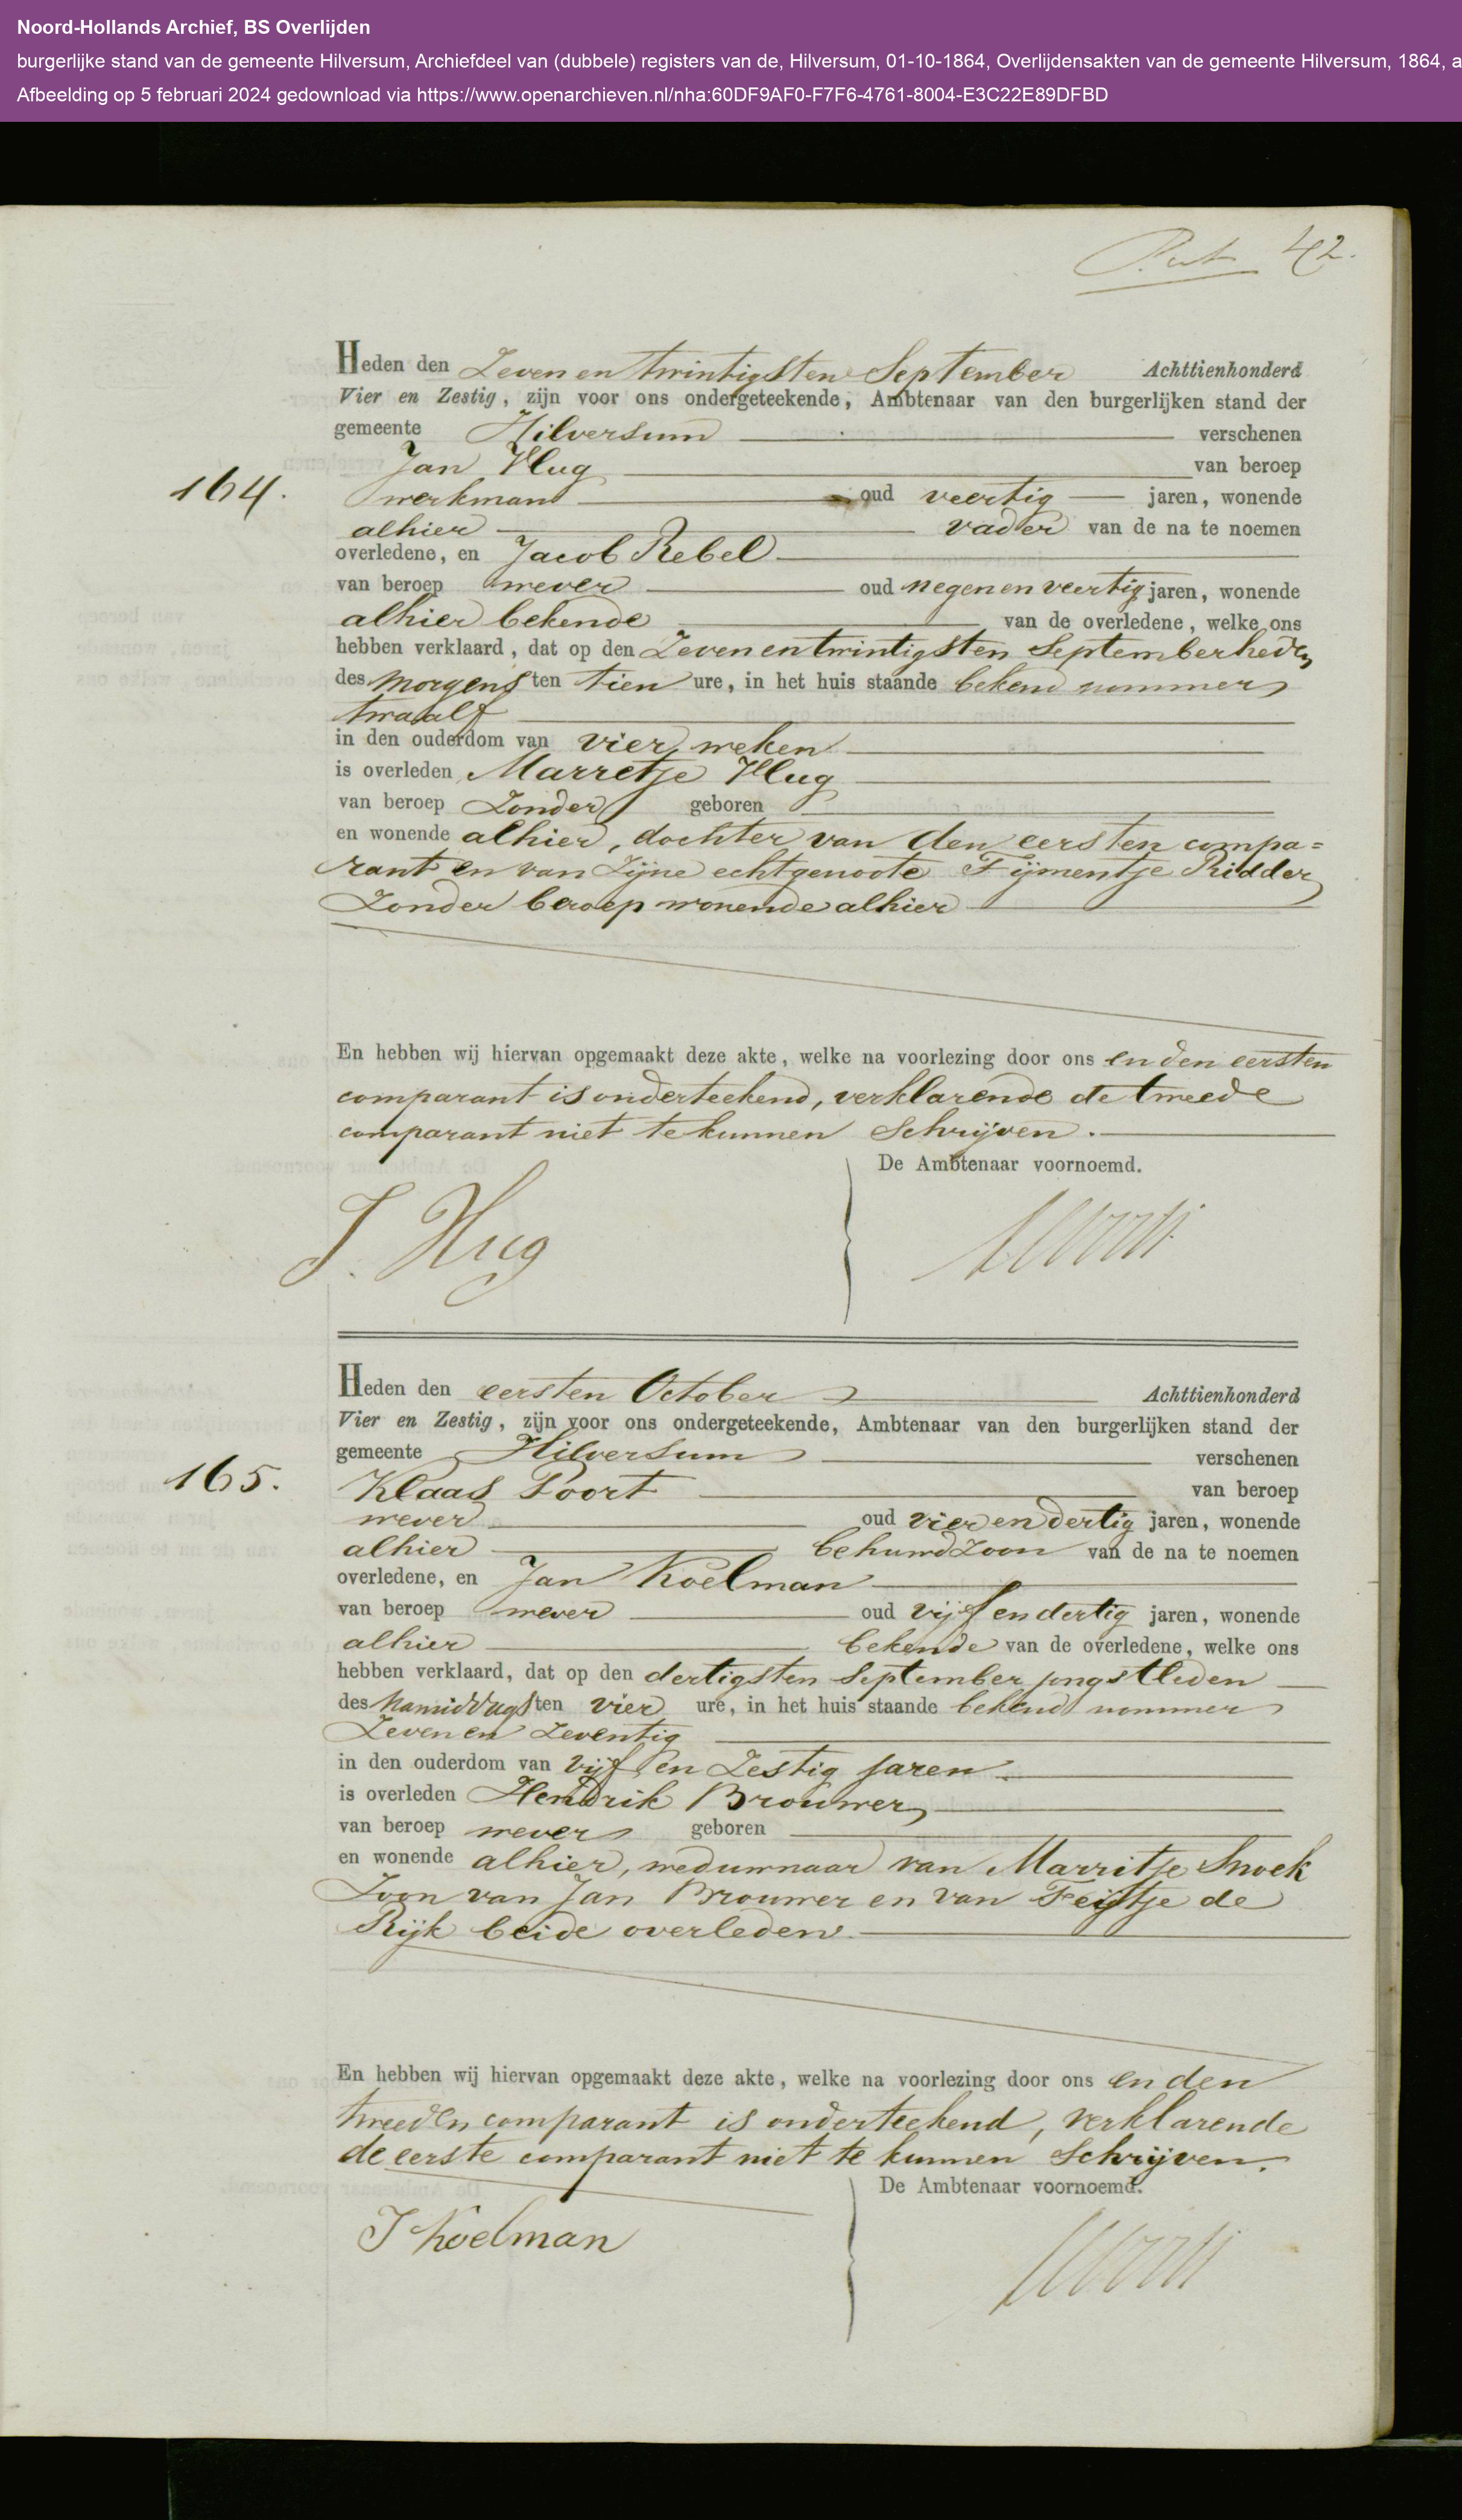 Noord-Hollands Archief, BS Overlijden
burgerlijke stand van de gemeente Hilversum, Archiefdeel van (dubbele) registers van de, Hilversum, 01-10-1864, Overlijdensakten van de gemeente Hilversum, 1864, a
Afbeelding op 5 februari 2024 gedownload via https://www.openarchieven.nl/nha:60DF9AF0-F7F6-4761-8004-E3C22E89DFBD
42.
Heden den Zeven en twintigsten September Achttienhonderd
Vier en Zestig, zijn voor ons ondergeteekende, Ambtenaar van den burgerlijken stand der
gemeente Hilversum verschenen
Jan Vlug van beroep
164.
werkman oud veertig jaren, wonende
alhier vader van de na te noemen
overledene, en Jacob Rebel
van beroep wever oud negen en veertig jaren, wonende
alhier bekende van de overledene, welke ons
hebben verklaard, dat op den Zeven en twintigsten September heden
des morgens ten tien ure, in het huis staande bekend nommer
twaalf
in den ouderdom van vier weken
is overleden Marretje Vlug
van beroep Zonder geboren
en wonende alhier, dochter van den eersten compa=
rant en van Zijne echtgenoote Fijmentje Ridder
Zonder beroep wonende alhier
En hebben wij hiervan opgemaakt deze akte, welke na voorlezing door ons en den eersten
comparant is onderteekend, verklarende de tweede
comparant niet te kunnen Schrijven.
De Ambtenaar voornoemd.
J. Vlug
Heden den eersten October Achttienhonderd
Vier en Zestig, zijn voor ons ondergeteekende, Ambtenaar van den burgerlijken stand der
gemeente Hilversum verschenen
165.
Klaas Poort van beroep
wever oud vier en dertig jaren, wonende
alhier behuwdzoon van de na te noemen
overledene, en Jan Koelman
van beroep wever oud vijf en dertig jaren, wonende
alhier bekende van de overledene, welke ons
hebben verklaard, dat op den dertigsten September jongstleden
des namiddags ten vier ure, in het huis staande bekend nommer
Zeven en Zeventig
in den ouderdom van vijf en Zestig jaren
is overleden Hendrik Brouwer
van beroep wever geboren
en wonende alhier, weduwnaar van Marritje Snoek
Zoon van Jan Brouwer en van Feijtje de
Rijk beide overleden.
En hebben wij hiervan opgemaakt deze akte, welke na voorlezing door ons en den
tweeden comparant is onderteekend, verklarende
de eerste comparant niet te kunnen Schrijven.
De Ambtenaar voornoemd.
J Koelman